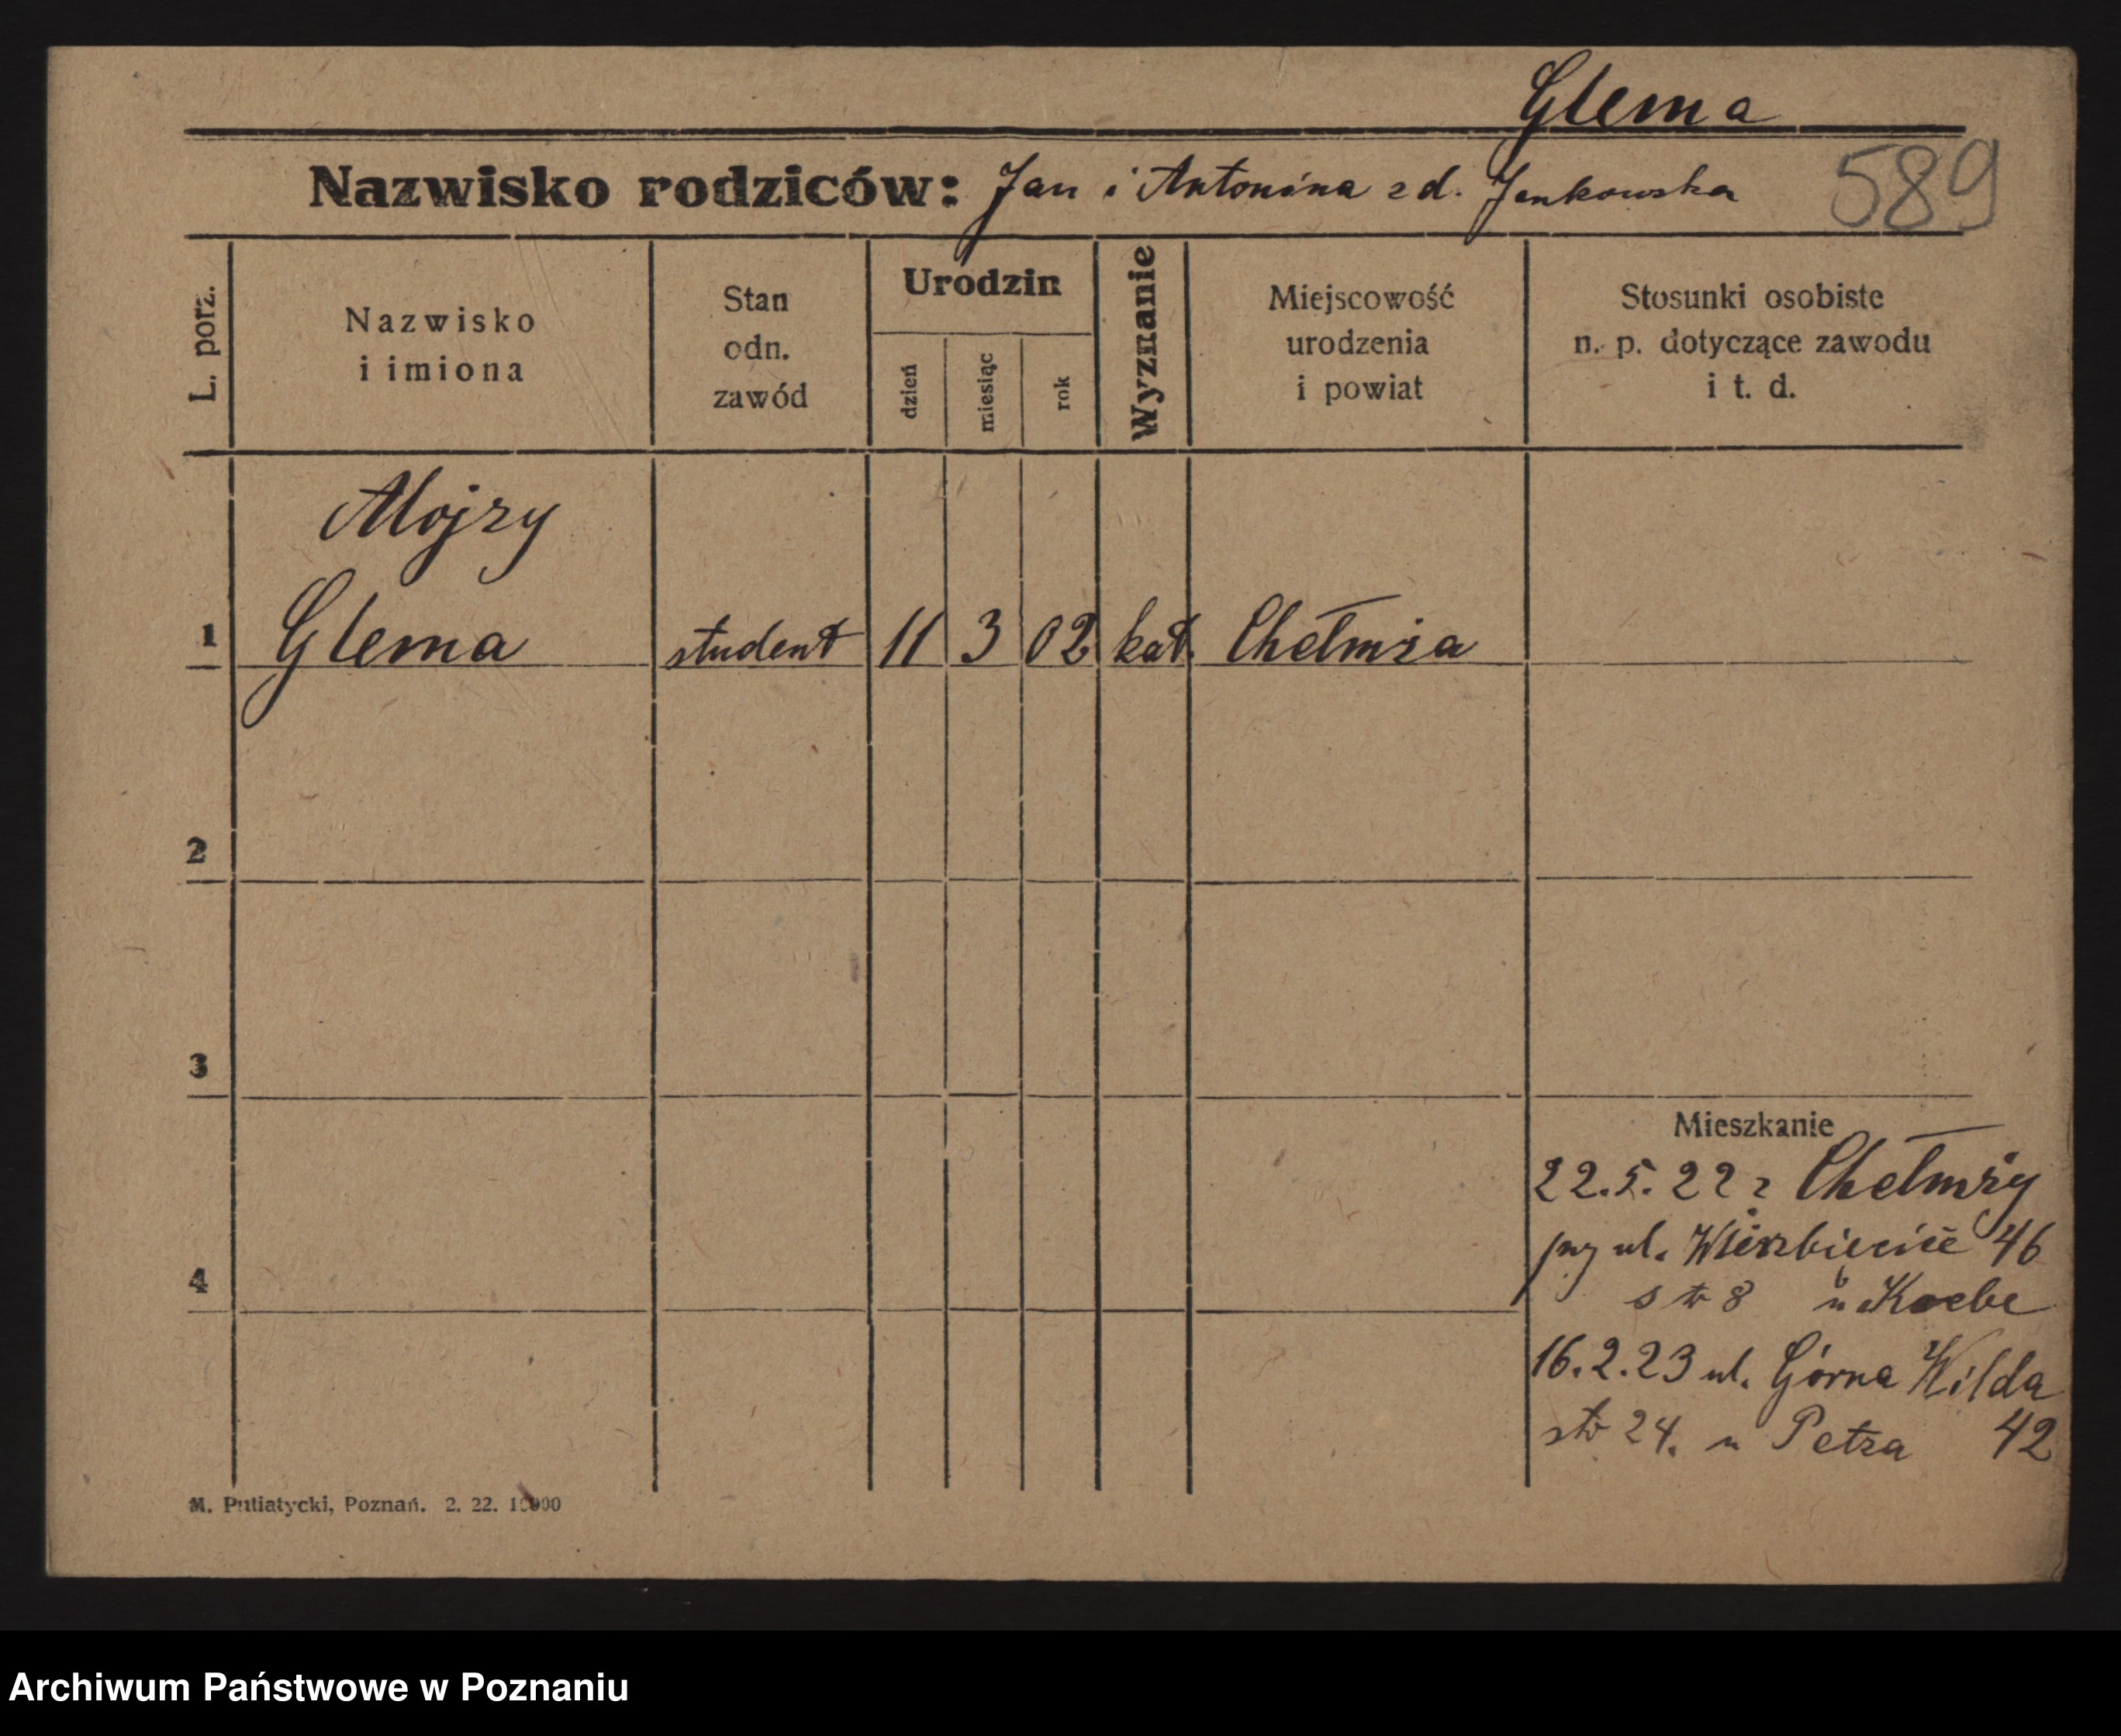 Glema
Nazwisko rodziców: Jan i Antonina z d. Jankowska 589
L. porz.
Nazwisko
i imiona
Stan
odn.
zawód
Urodzin
dzień
miesiąc
rok
Wyznanie
Miejscowość
urodzenia
i powiat
Stosunki osobiste
n. p. dotyczące zawodu
i t. d.
Alojzy
1 Glema student 11 3 02 kat. Chełmża
2
3
4
Mieszkanie
22.5.22 z Chełmży
ul. Wierzbięcice 46
str 8 u Koebe
16.2.23 ul. Górna Wilda
str 24. u Petza 42
M. Putiatycki, Poznań. 2. 22. 10000
Archiwum Państwowe w Poznaniu